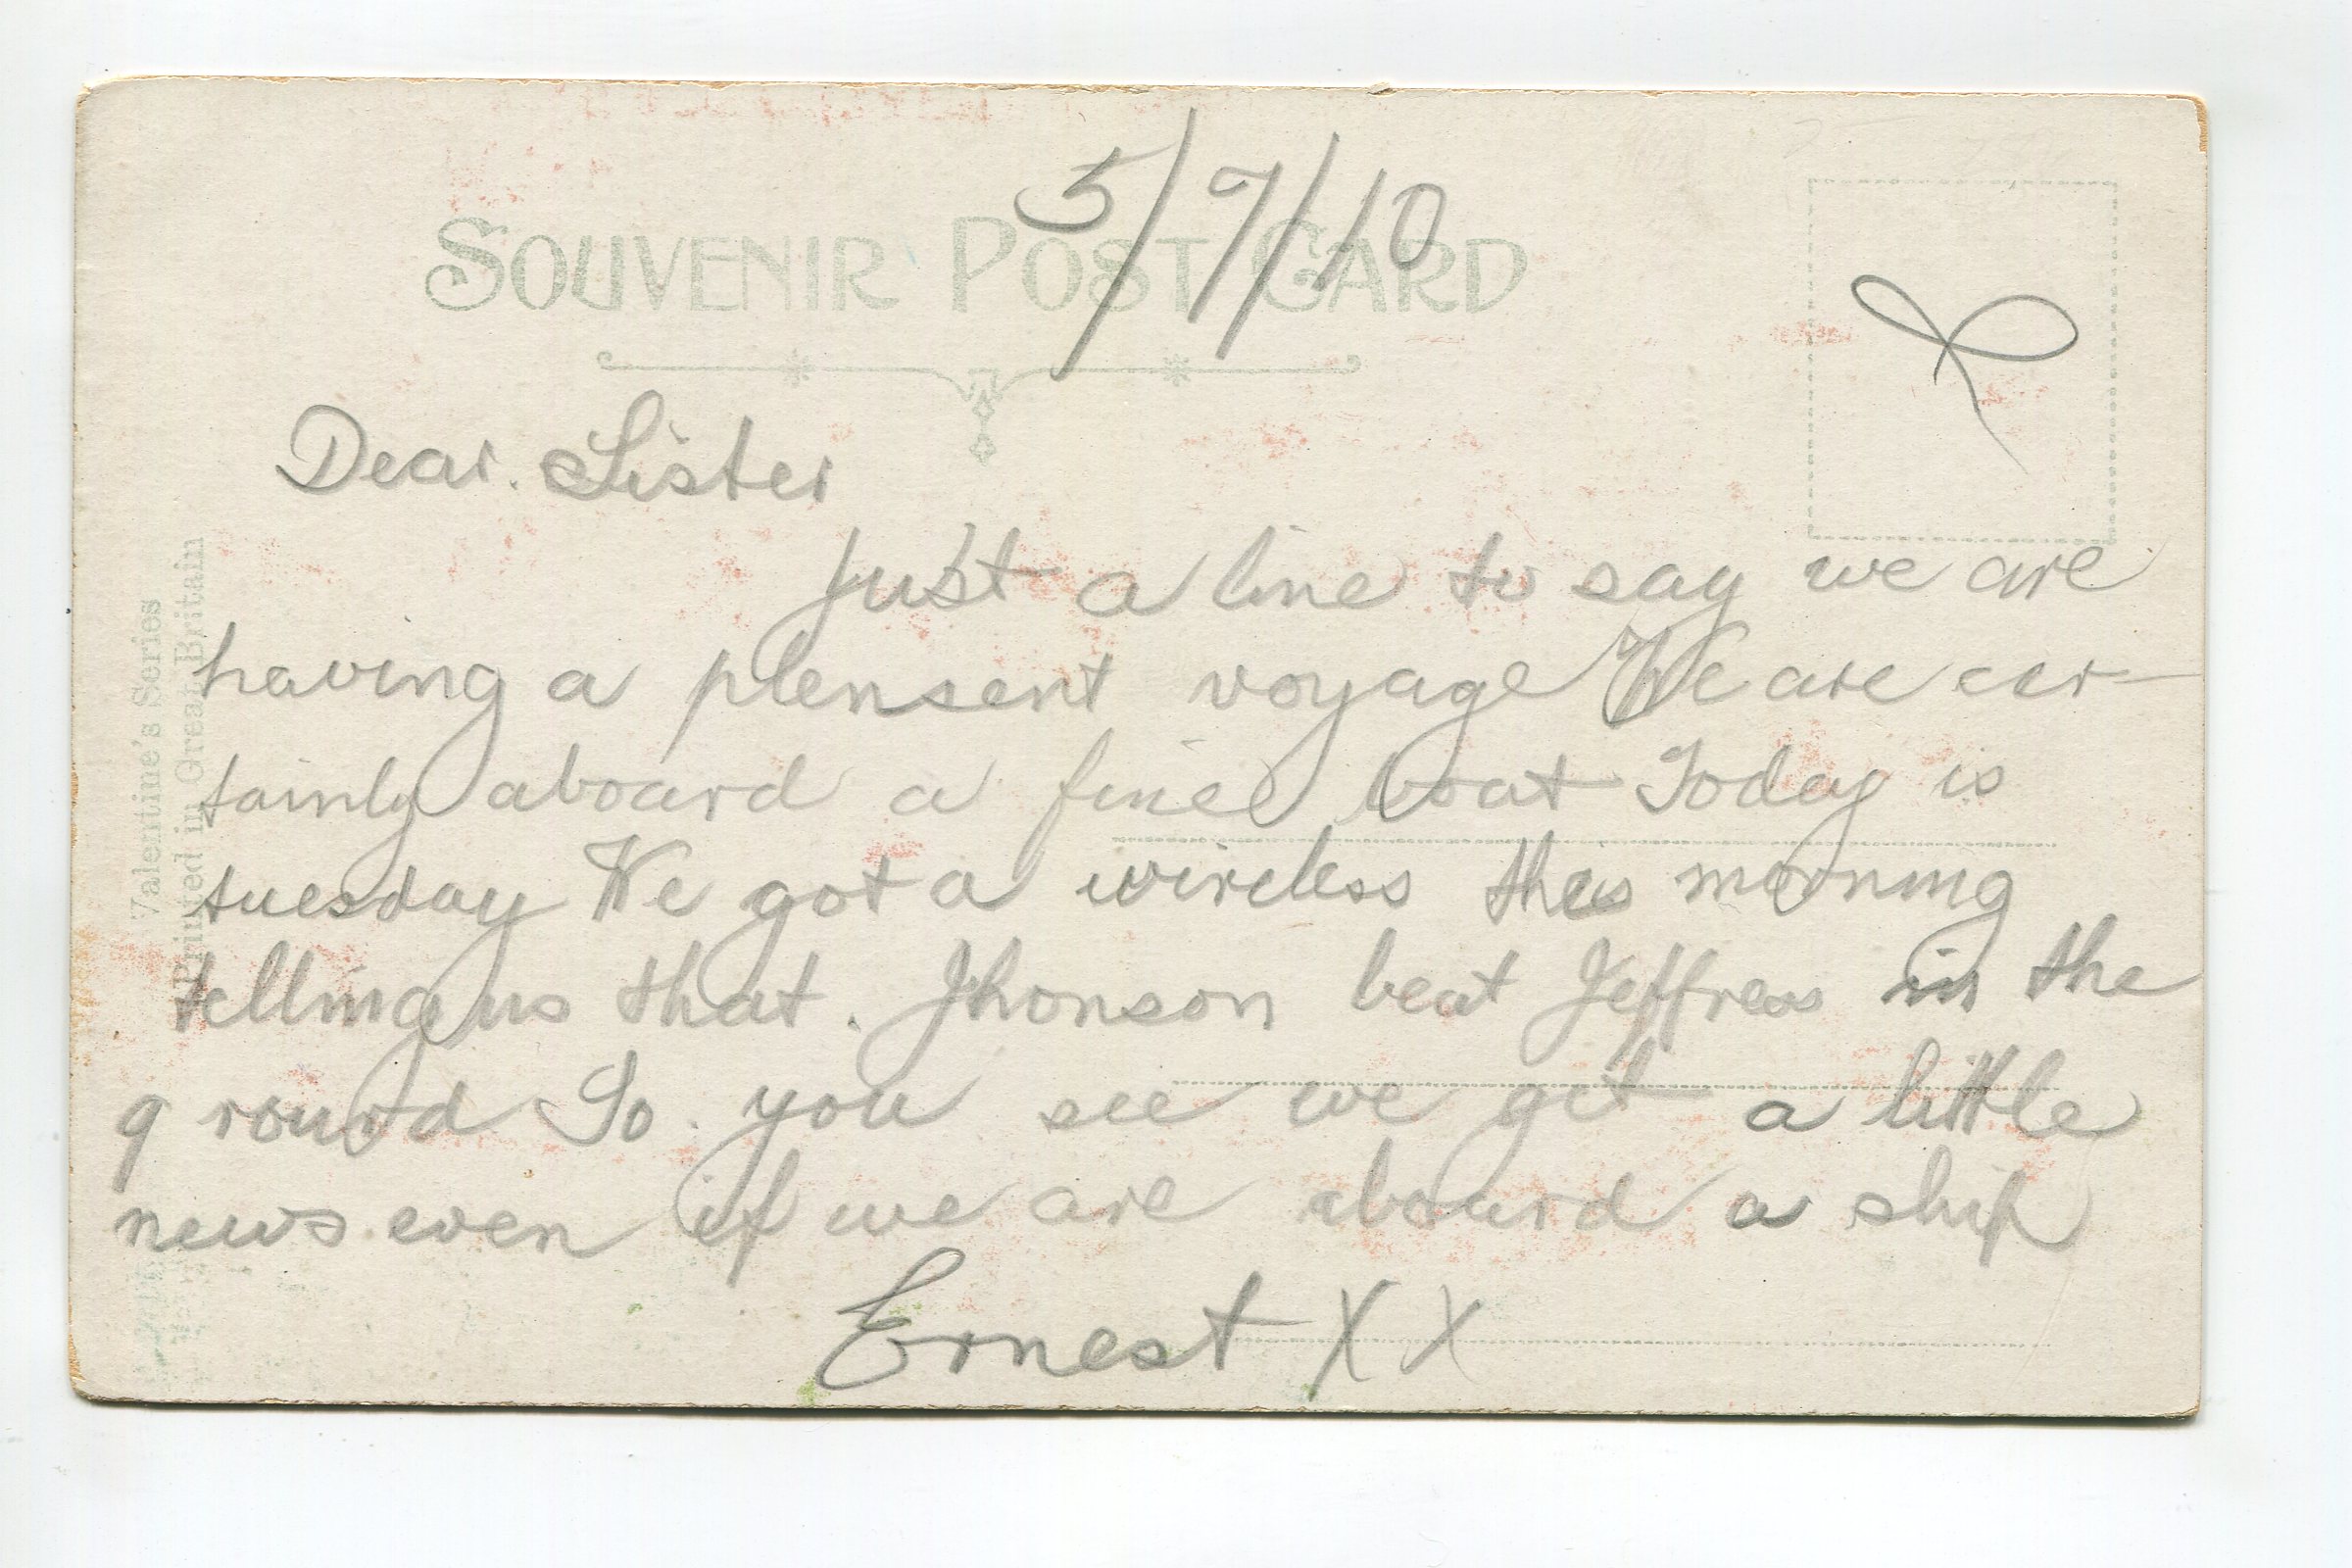 5/7/10
SOUVENIR POST CARD
Dear. Sister
Just a line to say we are
having a plensent voyage We are cer-
tainly aboard a fine boat Today is
tuesday We got a wireless this morning
telling us that. Jhonson beat Jeffress in the
9 round So. you see we get a little
news even if we are aboard a ship
Ernest X X
Valentine's Series
Printed in Great Britain